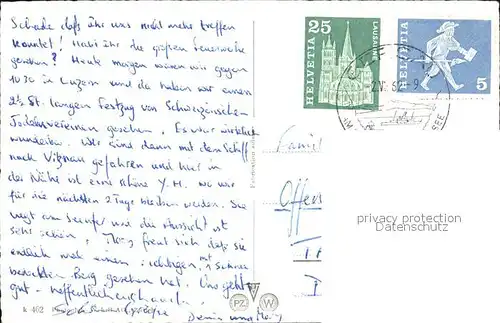 Schade daß ihr uns nicht mehr treffen
konntet! Habt ihr die großen Feuerwerke
gesehen? Heute morgen waren wir gegen
1030 in Luzern und da haben wir einen
2½ St. langen Festzug von Schweizerischen
Jodelvereinen gesehen. Es war wirklich
wunderbar. Wir sind dann mit dem Schiff
nach Vitznau gefahren und hier in
der Nähe ist eine schöne Y.H. wo wir
für die nächsten 2 Tage bleiben werden. Sie
liegt am Seeufer und die Aussicht ist
sehr schön. Mary freut sich daß sie
endlich mal einen richtigen mit Schnee
bedeckten Berg gesehen hat. Uns geht
gut - hoffentlich euch auch.
Grüße
Deine und Mary
k 462
PZ W
HELVETIA
25
LAUSANNE
HELVETIA
5
SEE
Famil
Offen
privacy protection
Datenschutz